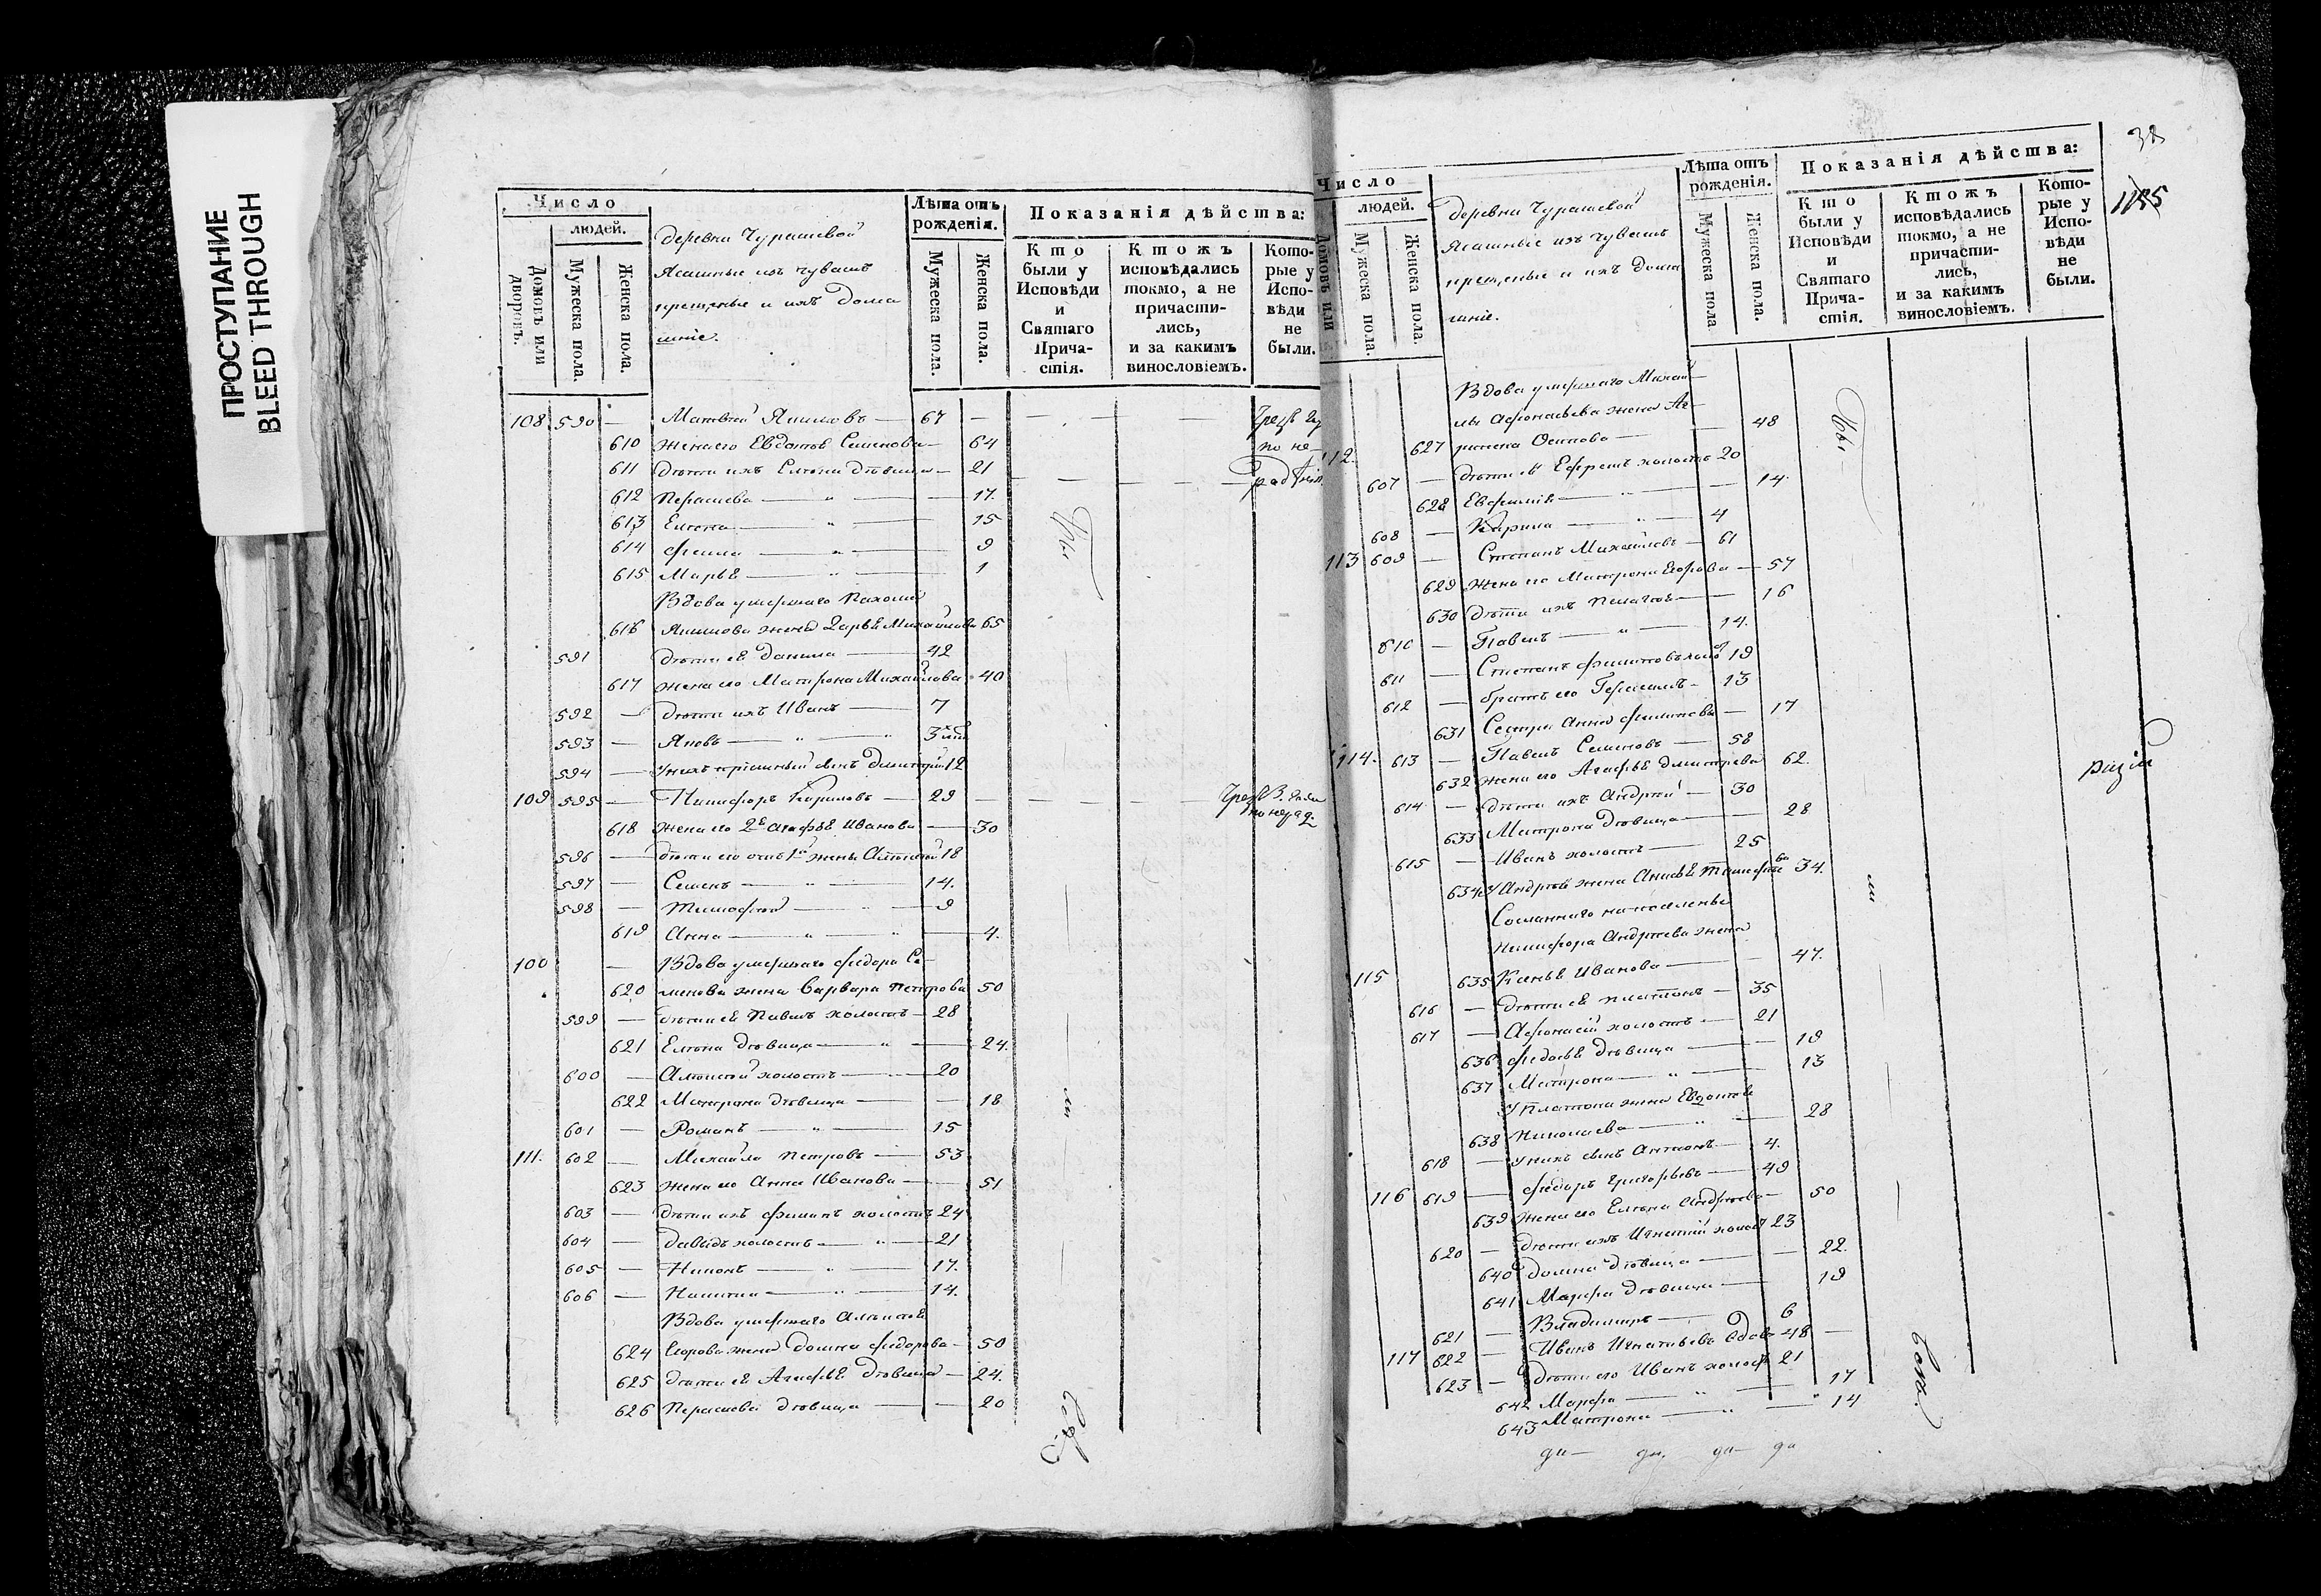 ПРОСТУПАНИЕ
BLEED THROUGH
Число
людей.
Домовъ или дворовъ.
Мужеска пола.
Женска пола.
деревни Чурашевой
Ясашные изъ чувашъ
крещеные и ихъ дома
шніе.
Лѣта отъ рожденія.
Мужеска пола.
Женска пола.
Показанія дѣйства:
Кто были у Исповѣди и Святаго Причастія.
Ктожъ исповѣдались токмо, а не причастились, и за какимъ винословіемъ.
Которые у Исповѣди не были.
108 590 — Матвей Якимовъ — 67 —
610 жена его Евдотья Семенова — 64
611 дѣти ихъ Елена дѣвица — 21
612 Параскева — " — 17.
613 Елена — " — 15
614 — " — 9
615 Марья — " — 1
Вдова умершаго Пахома
616 Якимова жена Дарья Михайлова 65
591 дѣти ея Данила — 42
617 жена его Матрона Михайлова 40
592 — дѣти ихъ Иванъ — 7
593 — Яковъ — " — 3
594 — У нихъ пріемный сынъ Дмитрій 12
109 595 — Никифоръ Кириловъ — 29 —
618 жена его 2я Агафья Иванова — 30
596 — дѣти его отъ 1й жены Алексей 18
597 — Семенъ — " — 14.
598 — Тимофей — " — 9
619 Анна — " — 4.
100 — Вдова умершаго Федора Се-
620 менова жена Варвара Петрова 50
599 — дѣти ея Павелъ холостъ — 28
621 Елена дѣвица — " — 24.
600 — Алексей холостъ — 20
622 Матрона дѣвица — 18
601 — Романъ — " — 15
111. 602 — Михайла Петровъ — 53
623 жена его Анна Иванова — 51
603 — дѣти ихъ Филипъ холостъ 24
604 — Давыдъ холостъ — " — 21
605 — Никонъ — " — 17.
606 — Никита — " — 14.
Вдова умершаго Алексея
624 Егорова жена Домна Федорова — 50
625 дѣти ея Агафья дѣвица — 24.
626 Параскева дѣвица — 20
38
1125
Число
людей.
Домовъ или
Мужеска пола.
Женска пола.
деревни Чурашевой
Ясашные изъ чувашъ
крещеные и ихъ дома
шніе.
Лѣта отъ рожденія.
Мужеска пола
Женска пола.
Показанія дѣйства:
Кто были у Исповѣди и Святаго Причастія.
Ктожъ исповѣдались токмо, а не причастились, и за какимъ винословіемъ.
Которые у Исповѣди не были.
Вдова умершаго Михай-
лы Афонасьева жена Аг-
112. 627 рипена Осипова — 48
607 — дѣти ея Ефремъ холостъ 20
628 Евфимія — " — 14.
608 — Кирила — " — 4
113 609 — Степанъ Михайловъ — 61
629 жена его Матрона Егорова — 57
630 дѣти ихъ Пелагея — 16
610 — Павелъ — " — 14.
611 — Степанъ Филиповъ 19
612 — братъ его Герасимъ — 13
631 Сестра Анна Филипова — 17
114. 613 — Павелъ Семеновъ — 58
632 жена его Агафья Дмитрева 62.
614 — дѣти ихъ Андрей — 30
633 Матрона дѣвица — 28
615 — Иванъ холостъ — 25
634 У Андрея жена Анисья Тимофеева 34.
Сосланнаго на поселенье
Никифора Андреева жена
115 635 Ксенья Иванова — 47.
616 — дѣти ея Платонъ — 35
617 — Афонасій холостъ — 21
636 Федосья дѣвица — 19
637 Матрона — " — 13
У Платона жена Евдотья
638 Николаева — " — 28
618 — У нихъ сынъ Антонъ — 4.
116 619 — Федоръ Григорьевъ — 49
639 жена его Елена Андреева — 50
620 — дѣти ихъ Игнатій холост 23
640 Домна дѣвица — 22.
641 Марфа дѣвица — 19
621 — Владимиръ — 6
117 622 — Иванъ Игнатьевъ вдовъ 48 —
623 — дѣти его Иванъ холост 21
642 Марфа — " — 17
643 Матрона — " — 14